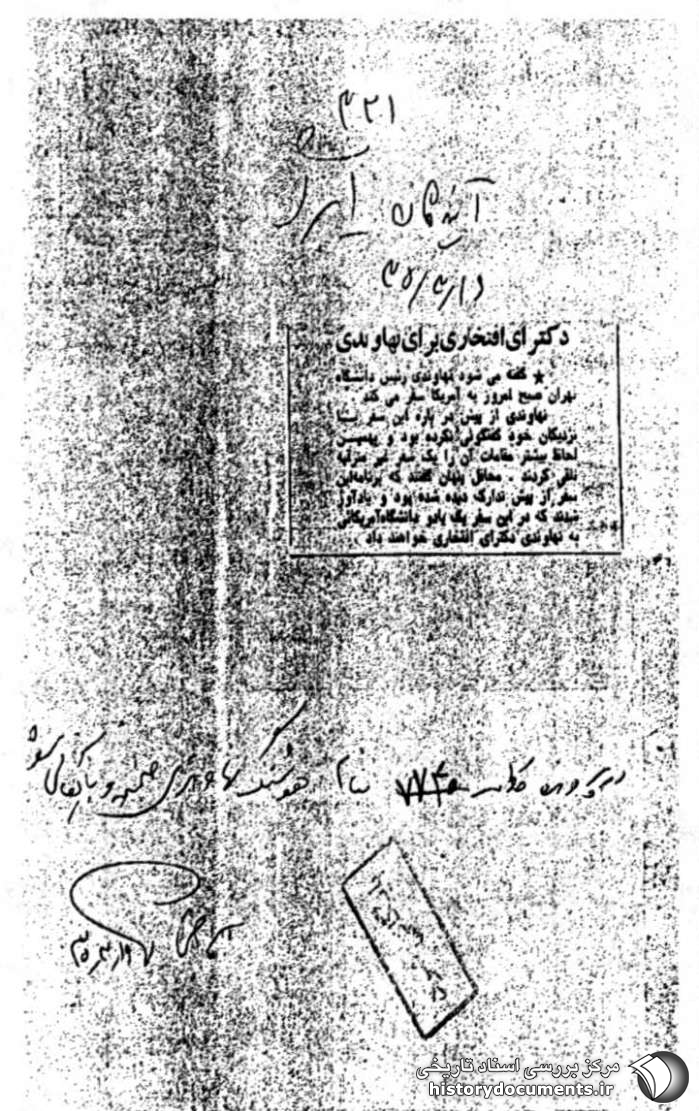 ۳۲۱
آیندگان
دکترای افتخاری برای نهاوندی
★ گفته می شود نهاوندی رئیس دانشگاه
تهران صبح امروز به آمریکا سفر می کند .
نهاوندی از پیش در باره این سفر با
نزدیکان خود گفتگوئی نکرده بود و بهمین
لحاظ بیشتر مقامات آن را یک سفر غیر مترقبه
تلقی کردند . محافل پنهان گفتند که برنامه این
سفر از پیش تدارک دیده شده بود و یادآور
شدند که در این سفر یک یا دو دانشگاه آمریکائی
به نهاوندی دکترای افتخاری خواهند داد .
در پرونده کلاسه بنام هوشنگ نهاوندی ضمیمه و بایگانی شود
مرکز بررسی اسناد تاریخی
historydocuments.ir